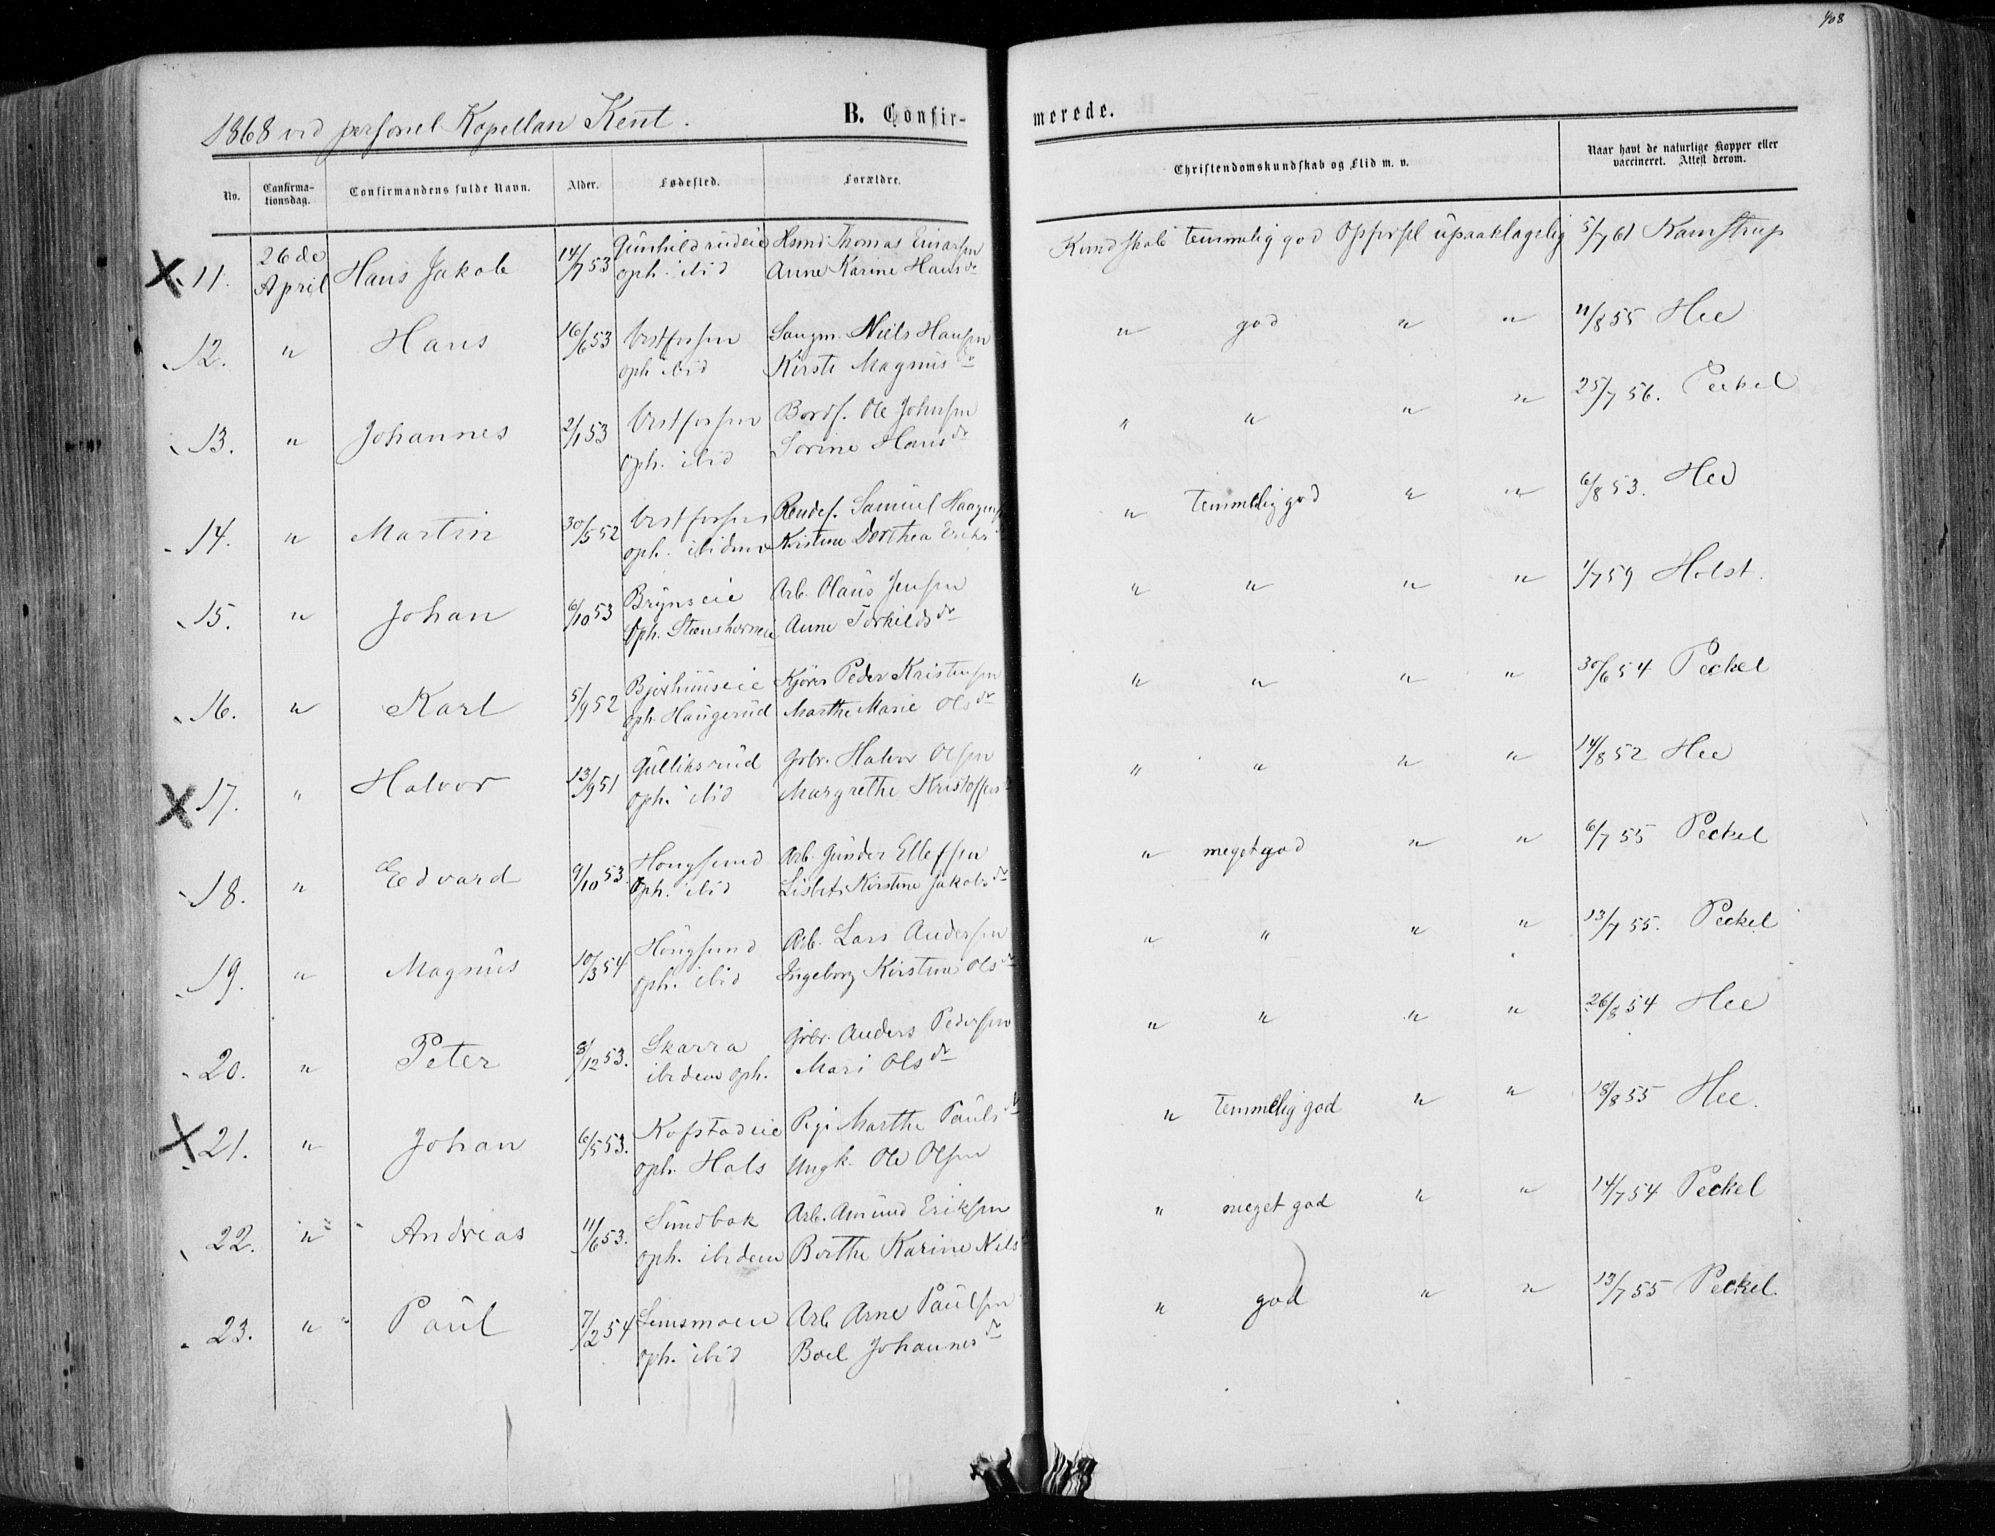 408
1868 ved personel Kapellan Kent.
B. Confir-
merede.
No.
Confirma-
tionsdag.
Confirmandens fulde Navn.
Alder.
Fødested.
Forældre.
Christendomskundskab og Flid m. v.
Naar havt de naturlige Kopper eller
vaccineret. Attest derom.
11. 26de April Hans Jakob 14/7 53 Gunhildrudeie Hsmd Thomas Einarsen Kundskab temmelig god Opførsel upaaklagelig 5/7 61 Kamstrup
oph. ibid Anne Karine Hansdr
12. " Hans 16/6 53 Vestfossen Saugm. Niels Hansen " god " " 11/8 55 Hee
oph ibid Kirsti Magnusdr
13. " Johannes 2/1 53 Vestfossen Bordf. Ole Johnsen " " " " 25/7 56. Peckel
oph. ibid Sorine Hansdr
14. " Martin 30/5 52 Vestfossen Rendef. Samuel Haagens " temmelig god " " 6/8 53. Hee
oph. ibidem Kristine Dorthea Eriks
15. " Johan 6/10 53 Brynseie Arb. Olaus Jensen " " " " 1/7 59 Holst.
Oph. Stenshorneie Anne Torkildsdr
16. " Karl 5/9 52 Bjørhuuseie Kjører Peder Kristensen " " " " 30/6 54 Peckel
oph. Haugerud Marthe Marie Olsdr
17. " Halvor 13/9 51 Gulliksrud Grbr. Halvor Olsen " " " " 14/8 52 Hee
oph. ibid Margrethe Kristoffers
18. " Edvard 9/10 53. Hougsund Arb. Gunder Ellefsen " meget god " " 6/7 55 Peckel
Oph. ibid Lisbet Kirstine Jakobsdr
19. " Magnus 10/3 54 Hougsund Arb. Lars Andersen " " " " 13/7 55. Peckel
oph. ibid Ingeborg Kirstine Olsdr
20. " Peter 8/12 53. Skarra Grbr. Anders Pedersen " " " " 26/8 54 Hee
ibidem oph. Mari Olsdr
21. " Johan 6/5 53. Kofstadeie Pige Marthe Paulsdr " temmelig god " " 18/8 55 Hee.
oph. Hals Ungk. Ole Olsen
22. " Andreas 11/6 53. Sundbak Arb. Amund Eriksen " meget god " " 14/7 54 Peckel
oph. ibidem Berthe Karine Nils
23. " Paul 7/2 54 Semsmoen Arb Arne Paulsen " god " " 13/7 55 Peckel.
oph. ibid Boel Johannesdr